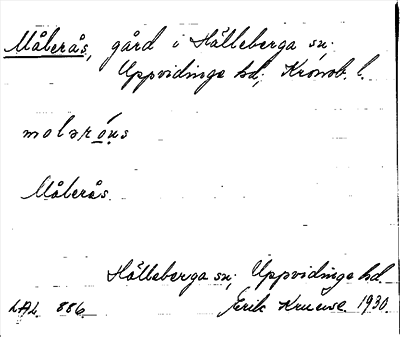 Målerås, gård i Hälleberga sn;
Uppvidinge hd; Kronob. l.
molərós
Målerås.
Hälleberga sn; Uppvidinge hd.
LAL 886. Erik Kruuse. 1930.